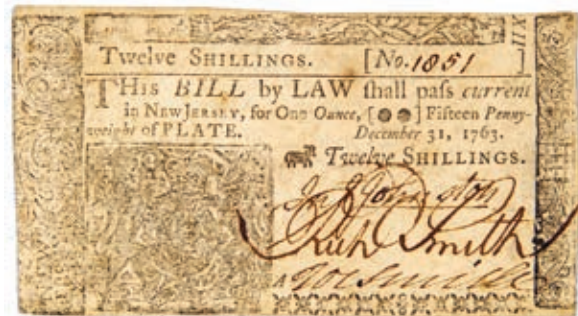 Twelve SHILLINGS. [No. 1851 ]
THis BILL by LAW ſhall paſs current
in NEW JERSEY, for One Ounce, [●●] Fifteen Penny-
weight of PLATE. December 31, 1763.
Twelve SHILLINGS.
Johnston
Rich Smith
A
XII